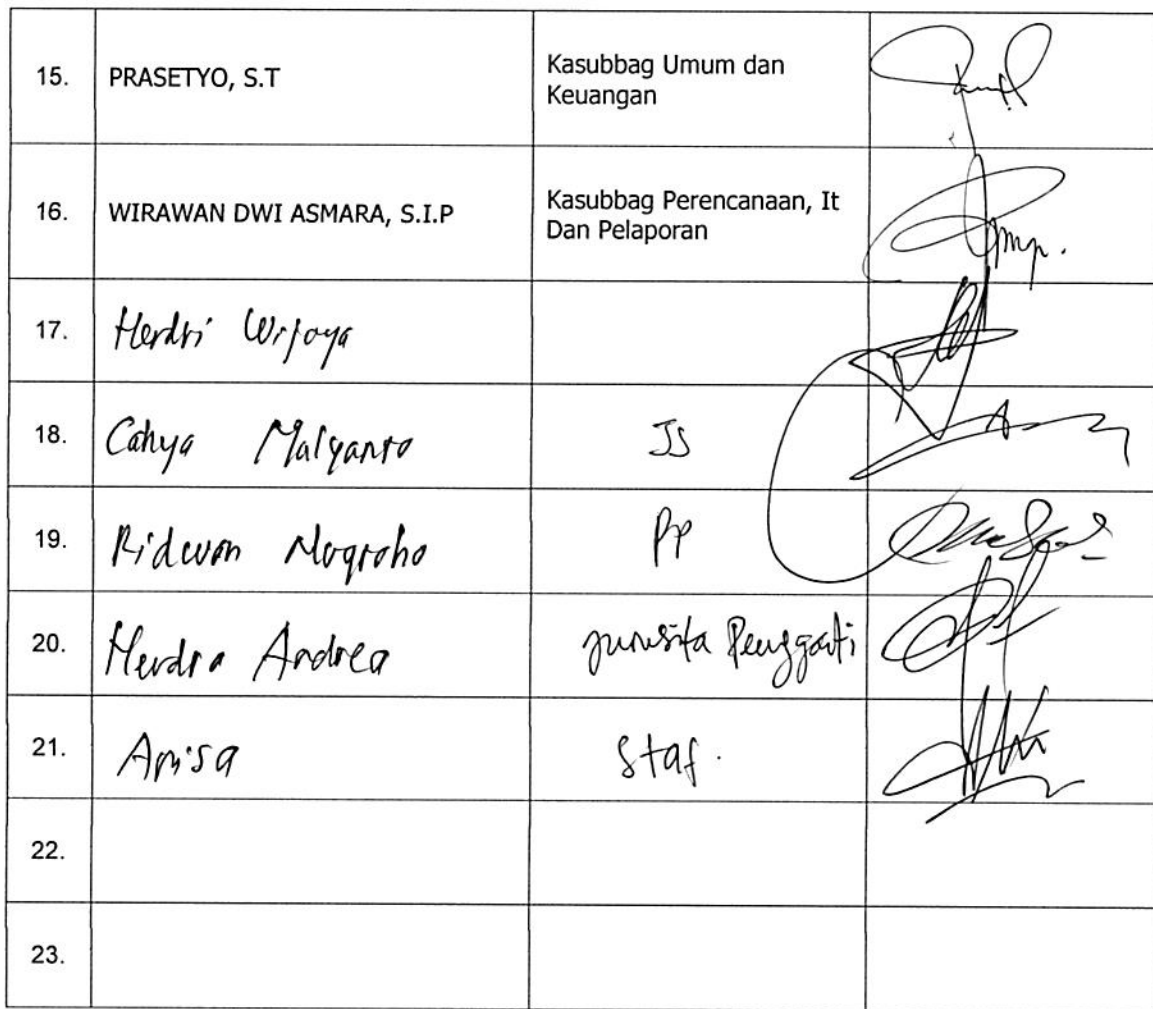 15. PRASETYO, S.T Kasubbag Umum dan
Keuangan
16. WIRAWAN DWI ASMARA, S.I.P Kasubbag Perencanaan, It
Dan Pelaporan
17. Hendri Wijaya
18. Cahya Malyanto JS
19. Ridwan Nugroho PP
20. Hendra Andrea Jurusita Pengganti
21. Anisa Staf.
22.
23.